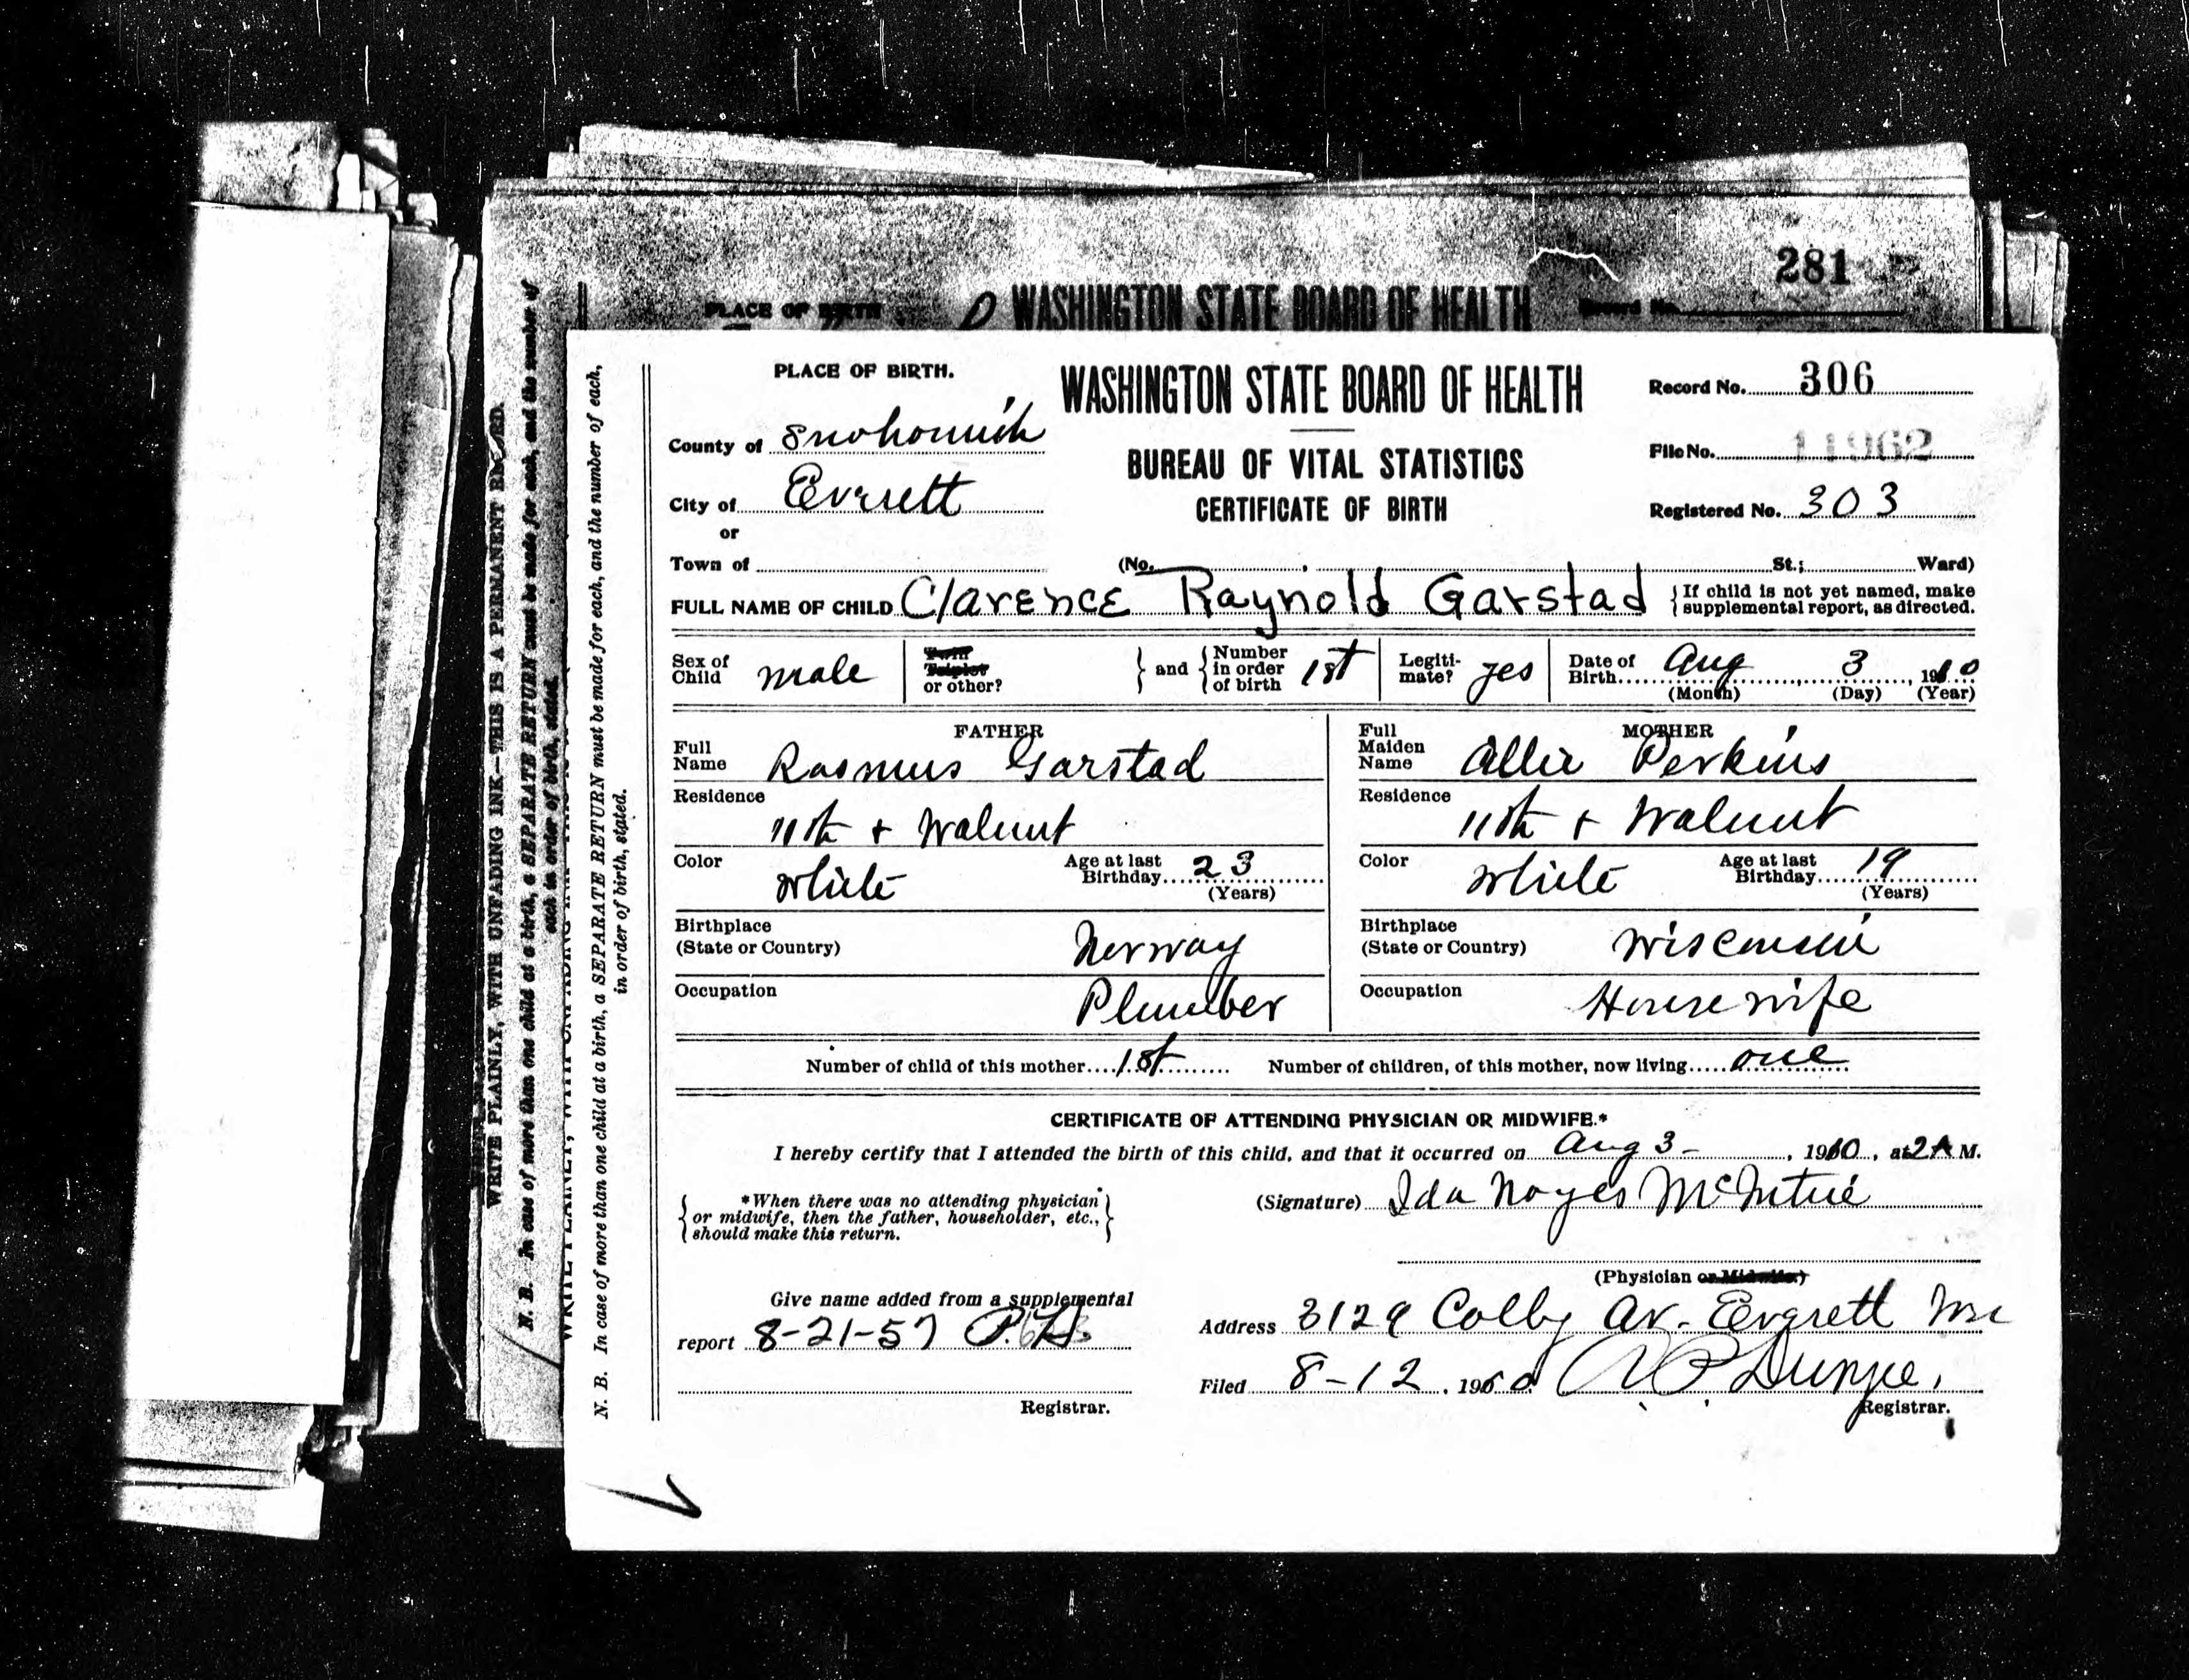 281
PLACE OF BIRTH WASHINGTON STATE BOARD OF HEALTH Record No.
WRITE PLAINLY, WITH UNFADING INK—THIS IS A PERMANENT RECORD.
N. B. In case of more than one child at a birth, a SEPARATE RETURN must be made for each, and the number of
each in order of birth, stated.
N. B. In case of more than one child at a birth, a SEPARATE RETURN must be made for each, and the number of each,
in order of birth, stated.
PLACE OF BIRTH.
WASHINGTON STATE BOARD OF HEALTH
BUREAU OF VITAL STATISTICS
CERTIFICATE OF BIRTH
Record No. 306
File No. 11962
Registered No. 303
County of Snohomish
City of Everett
or
Town of (No. St.; Ward)
FULL NAME OF CHILD Clarence Raynold Garstad { If child is not yet named, make
supplemental report, as directed.
Sex of
Child male
Twin
Triplet
or other?
} and { Number
in order
of birth 1st
Legiti-
mate? yes
Date of
Birth Aug 3, 1910
(Month) (Day) (Year)
FATHER
Full
Name Rasmus Garstad
Residence
11th + Walnut
Color white Age at last
Birthday 23
(Years)
Birthplace
(State or Country) Norway
Occupation Plumber
MOTHER
Full
Maiden
Name Allie Perkins
Residence
11th + Walnut
Color white Age at last
Birthday 19
(Years)
Birthplace
(State or Country) Wisconsin
Occupation Housewife
Number of child of this mother 1st Number of children, of this mother, now living one
CERTIFICATE OF ATTENDING PHYSICIAN OR MIDWIFE.*
I hereby certify that I attended the birth of this child, and that it occurred on Aug 3 - , 1910, at 2 A M.
{ *When there was no attending physician
or midwife, then the father, householder, etc.,
should make this return. }
(Signature) Ida Noyes McIntire
(Physician or Midwife.)
Give name added from a supplemental
report 8-21-57
Registrar.
Address 3129 Colby Av. Everett Wn
Filed 8-12, 1910
Registrar.